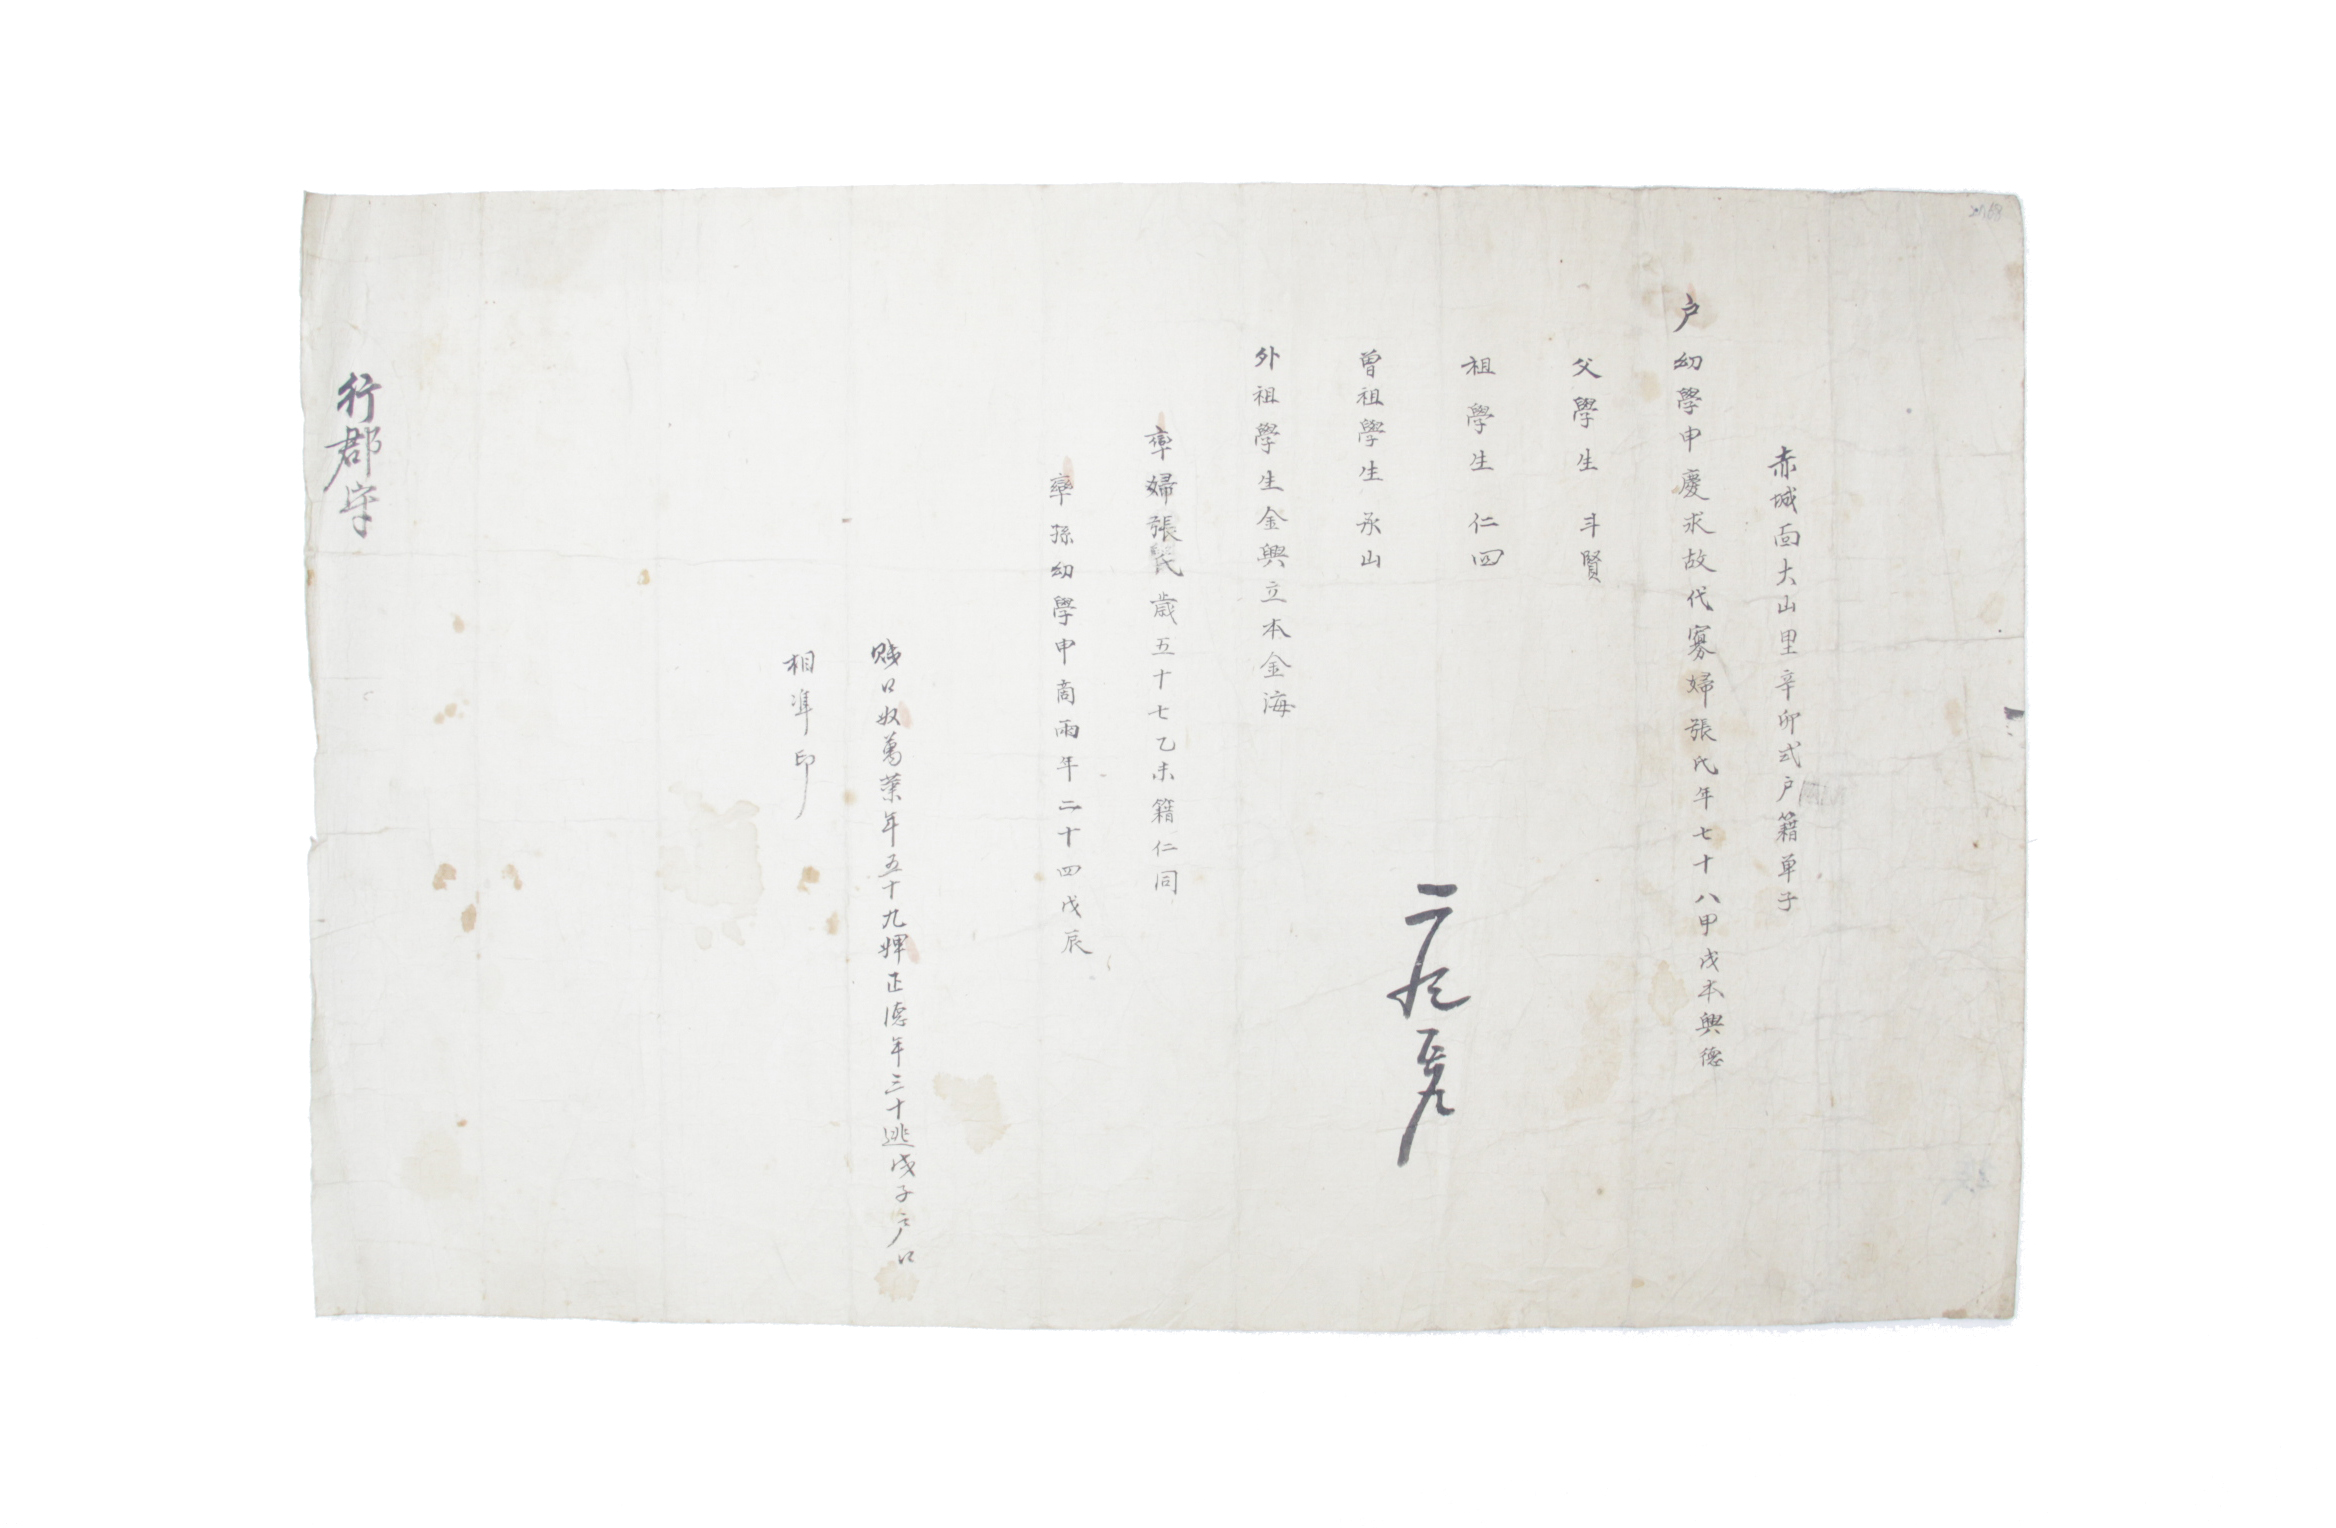 赤城面大山里辛卯式户籍单子
户 幼學申慶求故代寡婦張氏年七十八甲戌本興德
父學生 斗賢
祖學生 仁四
曾祖學生 承山
外祖學生金興立本金海
率婦張氏歲五十七乙未籍仁同
率孫幼學申商雨年二十四戊辰
賤口奴萬葉年五十九婢正德年三十逃戊子户口
相準印
行郡守